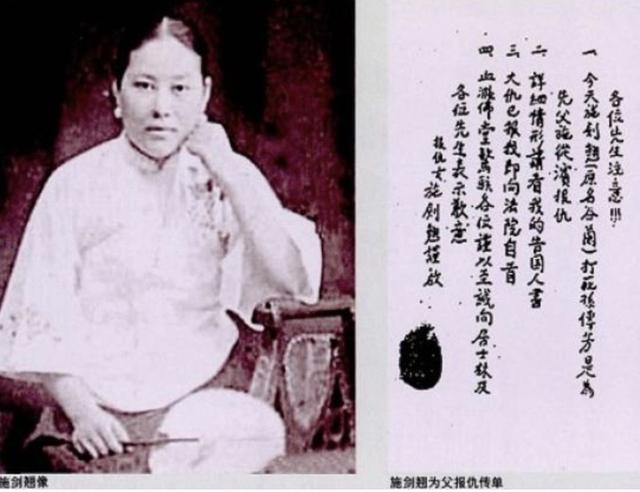 各位先生注意!!!
一 今天施剑翘(原名谷兰)打死孫傳芳是為
先父施從濱报仇
二 詳細情形請看我的告国人書
三 大仇已报我即向法院自首
四 血濺佛堂驚駭各位謹以至誠向居士林及
各位先生表示歉意
报仇女施剑翘謹啟
施剑翘像
施剑翘为父报仇传单